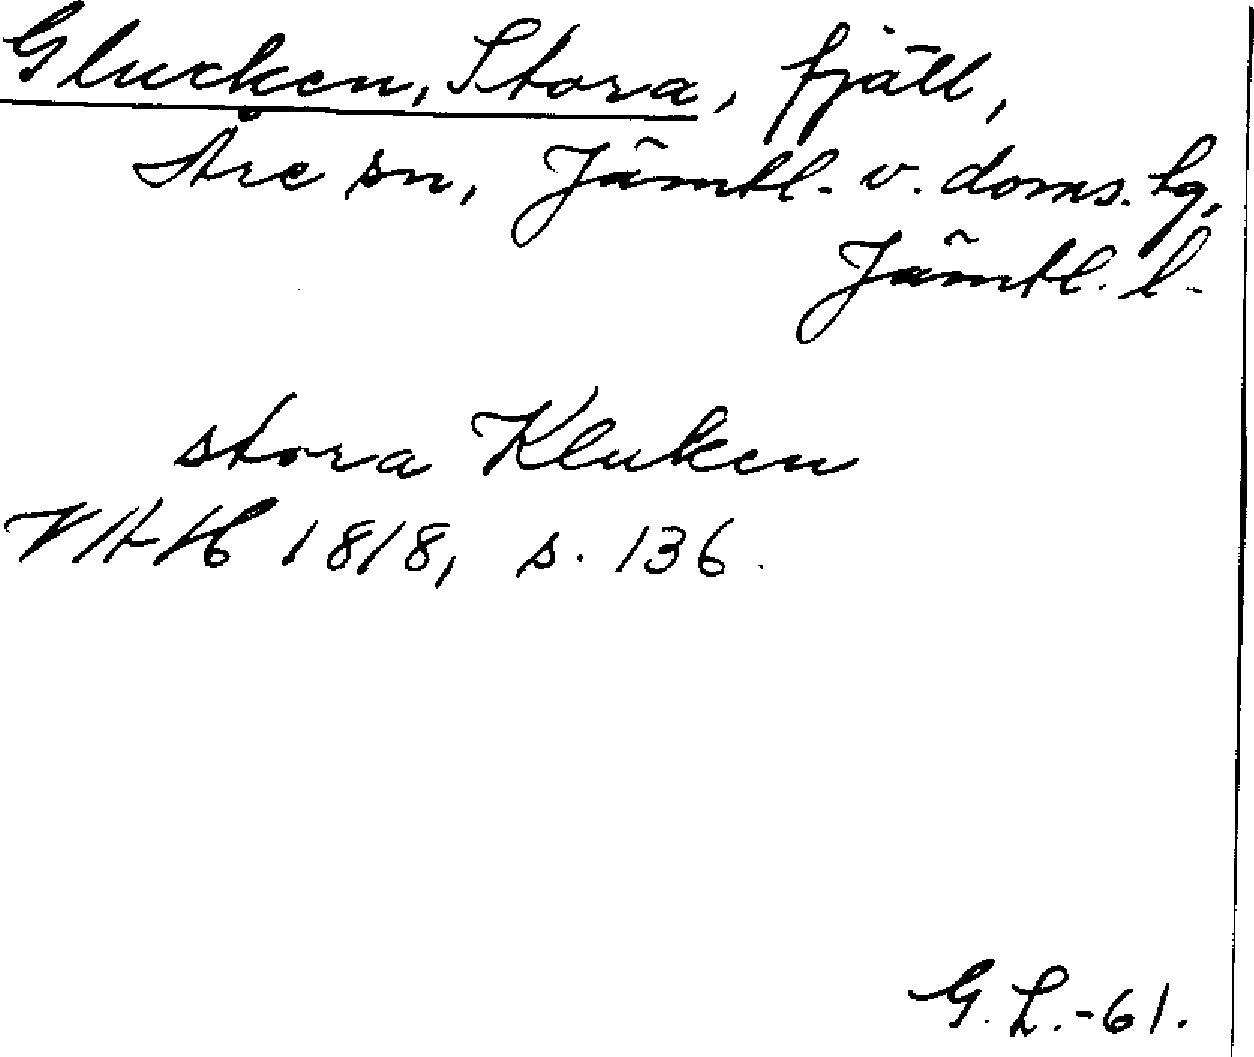 Glucken, Stora, fjäll,
Åre sn, Jämtl. v. doms. hg,
Jämtl. l.
stora Kluken
VAH 1818, s. 136.
G. L. -61.